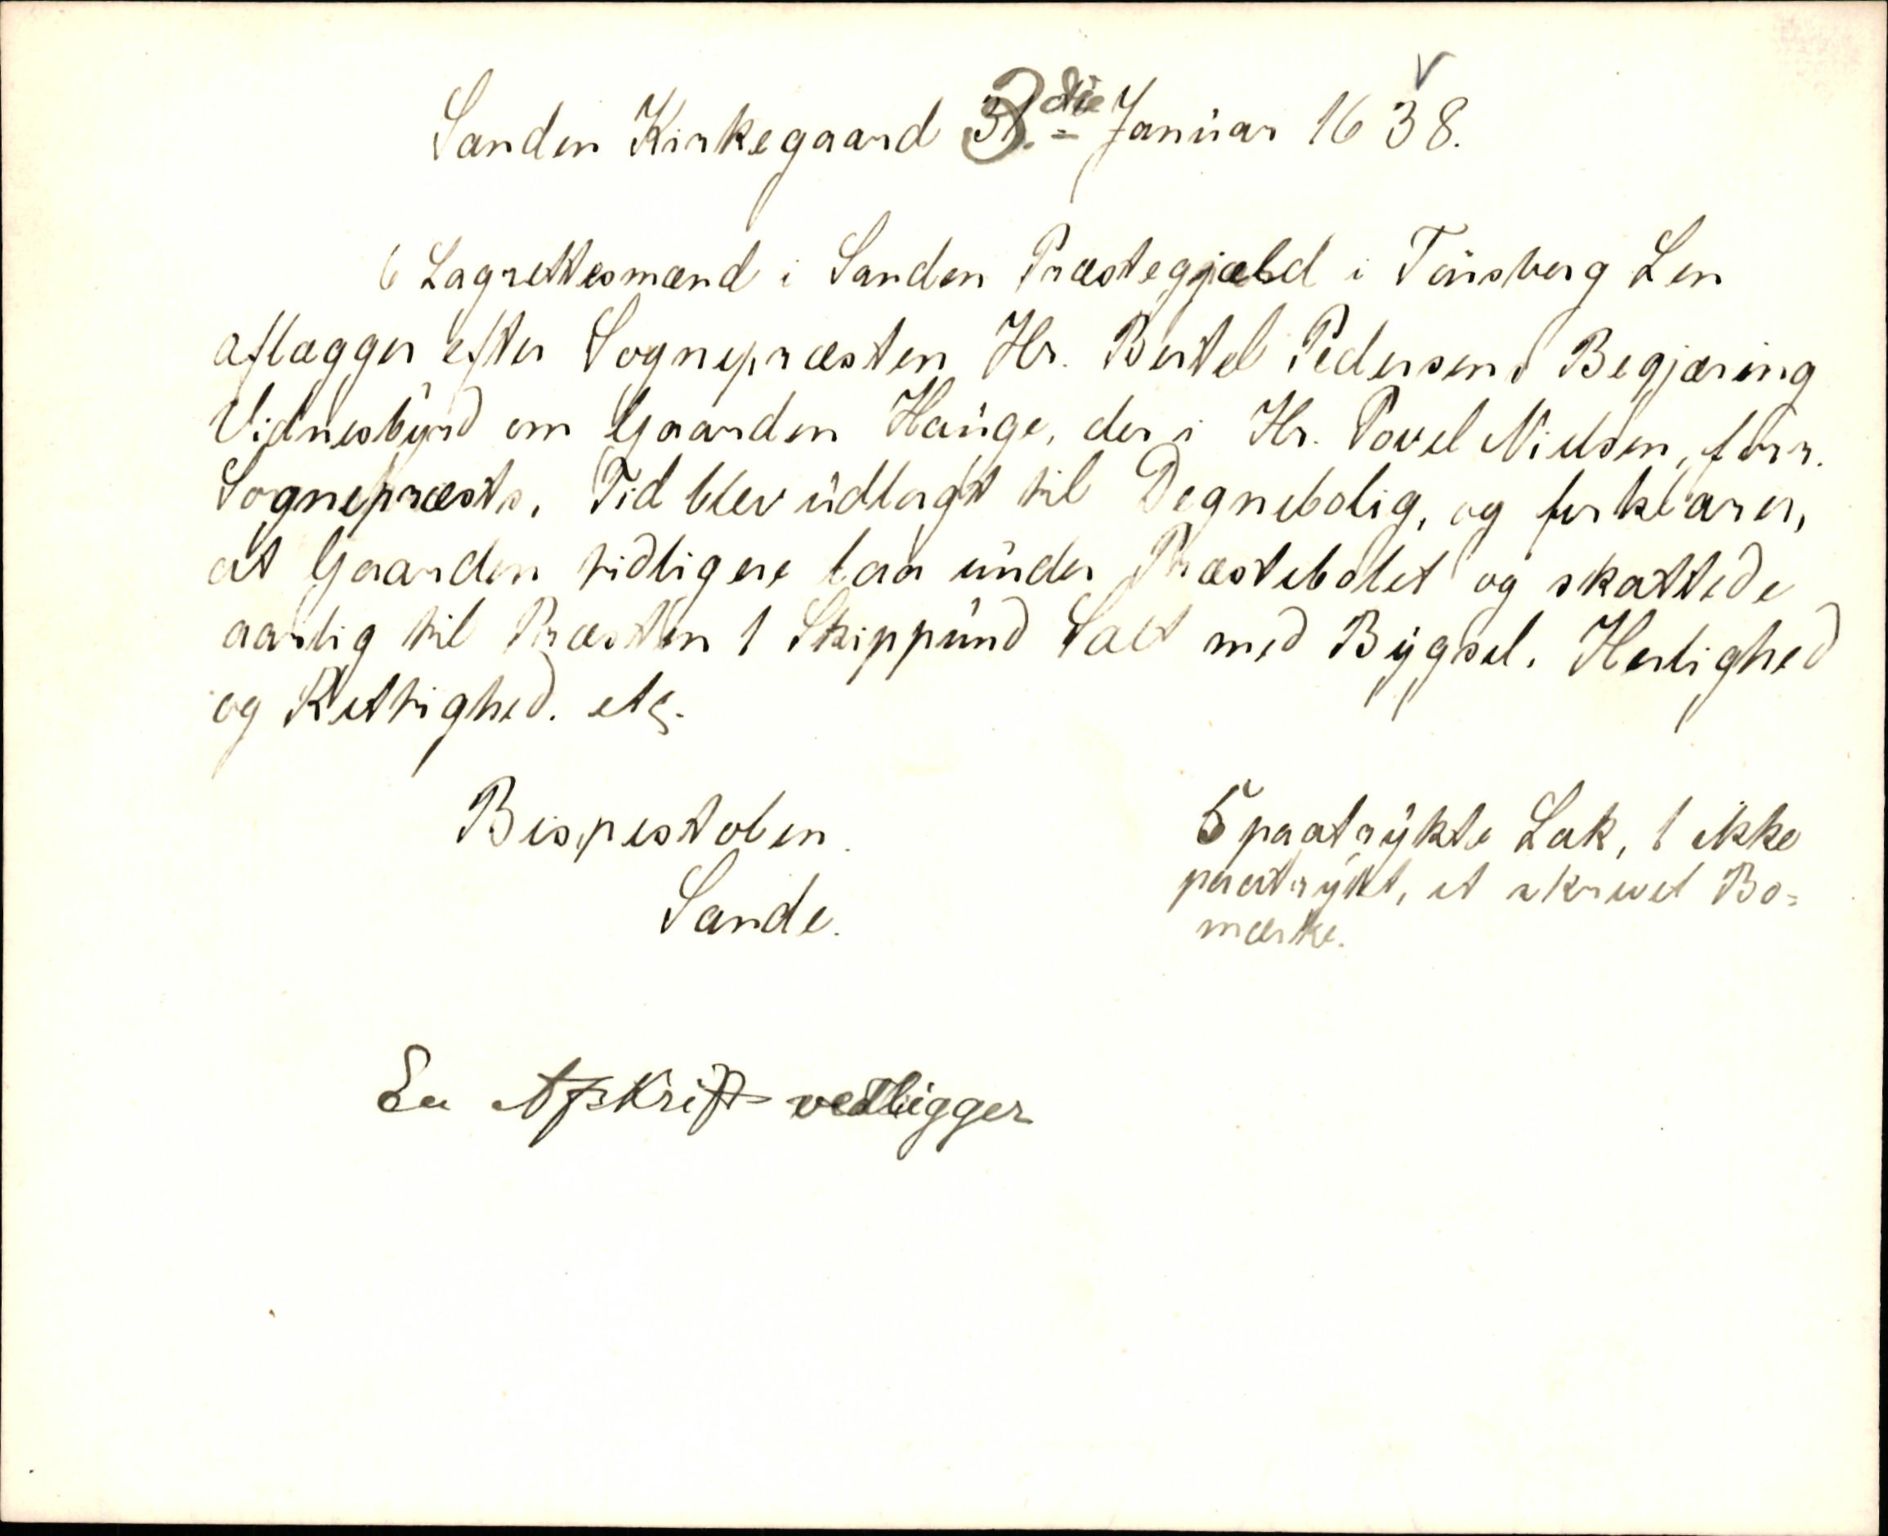 Sanden Kirkegaard 3die Januar 1638.
6 Lagrettesmænd i Sanden Præstegjæld i Tönsberg Len
aflægger efter Sognepræsten Hr. Bertel Pedersens Begjæring
Vidnesbyrd om Gaarden Hauge, der i Hr. Povel Nielsen, forr.
Sognepræsts, Tid blev udlagt til Degnebolig, og forklarer,
at Gaarden tidligere laa under Præstebolet og skattede
aarlig til Præsten 1 Skippund Salt med Bygsel. Herlighed
og Rettighed. etc.
Bispestolen.
Sande.
5 paatrykte Lak, 1 ikke
paatrykt, et skrevet Bo-
mærke.
En Afskrift vedligger